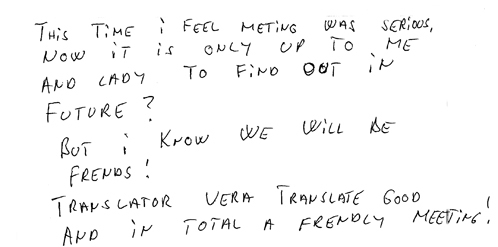 THIS TIME i FEEL METING WAS SERIOUS,
NOW iT iS ONLY UP TO ME
AND LADY TO FIND OUT iN
FUTURE?
BUT i KNOW WE WiLL BE
FRENDS!
TRANSLATOR VERA TRANSLATE GOOD
AND iN TOTAL A FRENDLY MEETiNG!